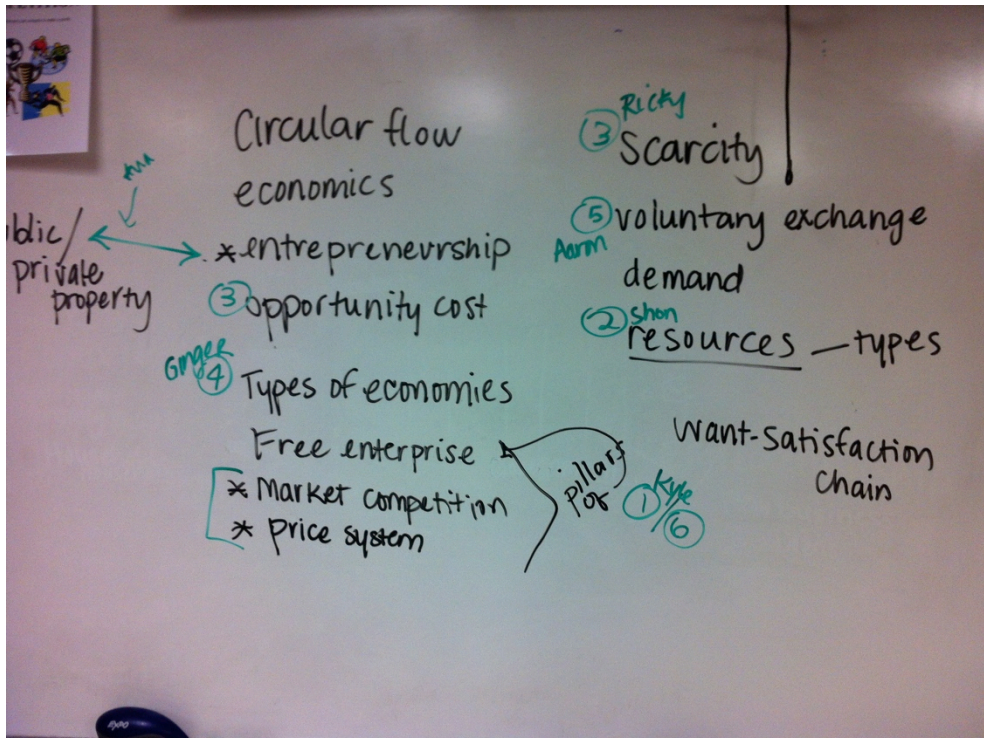 Circular flow
economics
* entrepreneurship
blic/
private
property
③ opportunity cost
Ginger
④ Types of economies
Free enterprise
* Market competition
* price system
pillars
of
Kyle
①/⑥
Ricky
③ Scarcity
⑤ voluntary exchange
Aaron
demand
② Shon
resources — types
Want-Satisfaction
Chain
EXPO